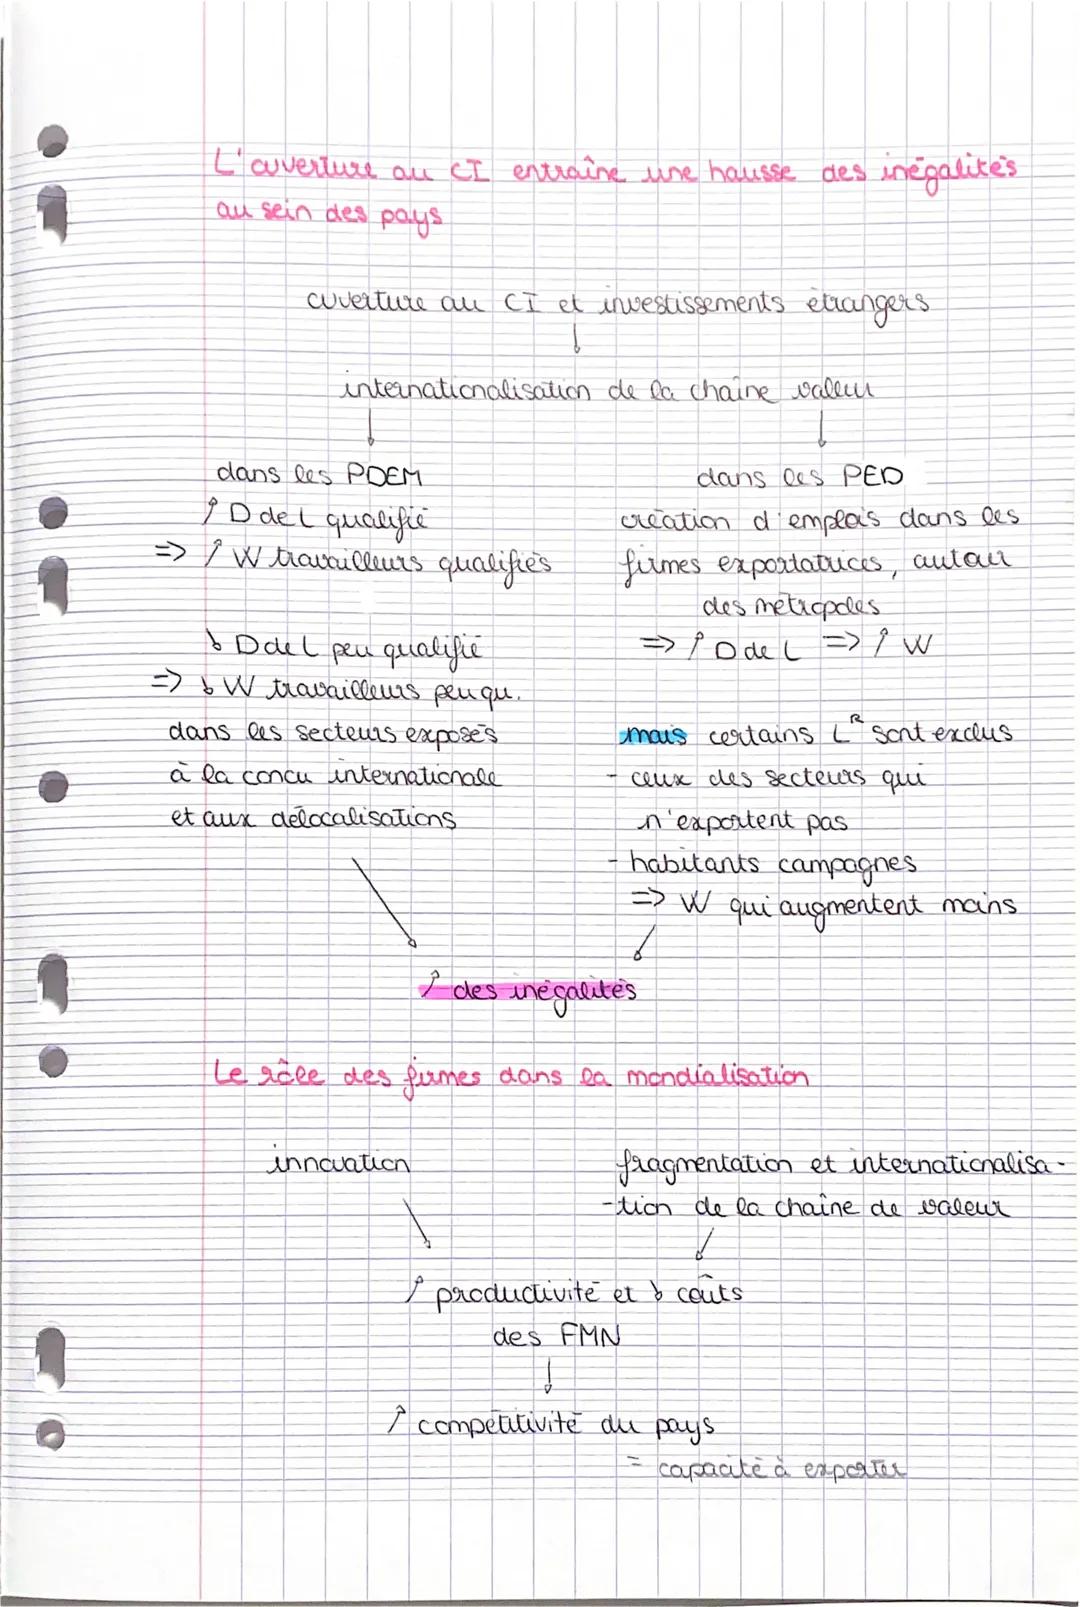 L'ouverture au CI entraîne une hausse des inégalités
au sein des pays
ouverture au CI et investissements étrangers
↓
internationalisation de la chaîne valeur
↓ ↓
dans les PDEM
↑ D de L qualifié
=> ↑ W travailleurs qualifiés
↓ D de L peu qualifié
=> ↓ W travailleurs peu qu.
dans les secteurs exposés
à la concu internationale
et aux délocalisations
dans les PED
création d'emplois dans les
firmes exportatrices, autour
des métropoles
=> ↑ D de L => ↑ W
mais certains L^R sont exclus
- ceux des secteurs qui
n'exportent pas
- habitants campagnes
=> W qui augmentent moins
↘ ↙
↑ des inégalités
Le rôle des firmes dans la mondialisation
innovation
fragmentation et internationalisa-
-tion de la chaîne de valeur
↘ ↙
↑ productivité et ↓ coûts
des FMN
↓
↑ compétitivité du pays
= capacité à exporter